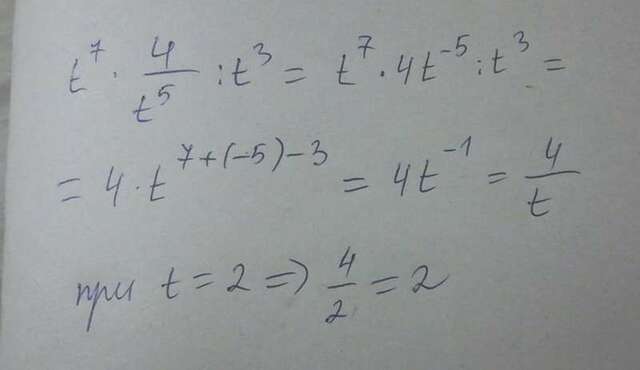 t⁷ · 4/t⁵ : t³ = t⁷ · 4t⁻⁵ : t³ =
= 4 · t⁷⁺⁽⁻⁵⁾⁻³ = 4t⁻¹ = 4/t
при t = 2 => 4/2 = 2